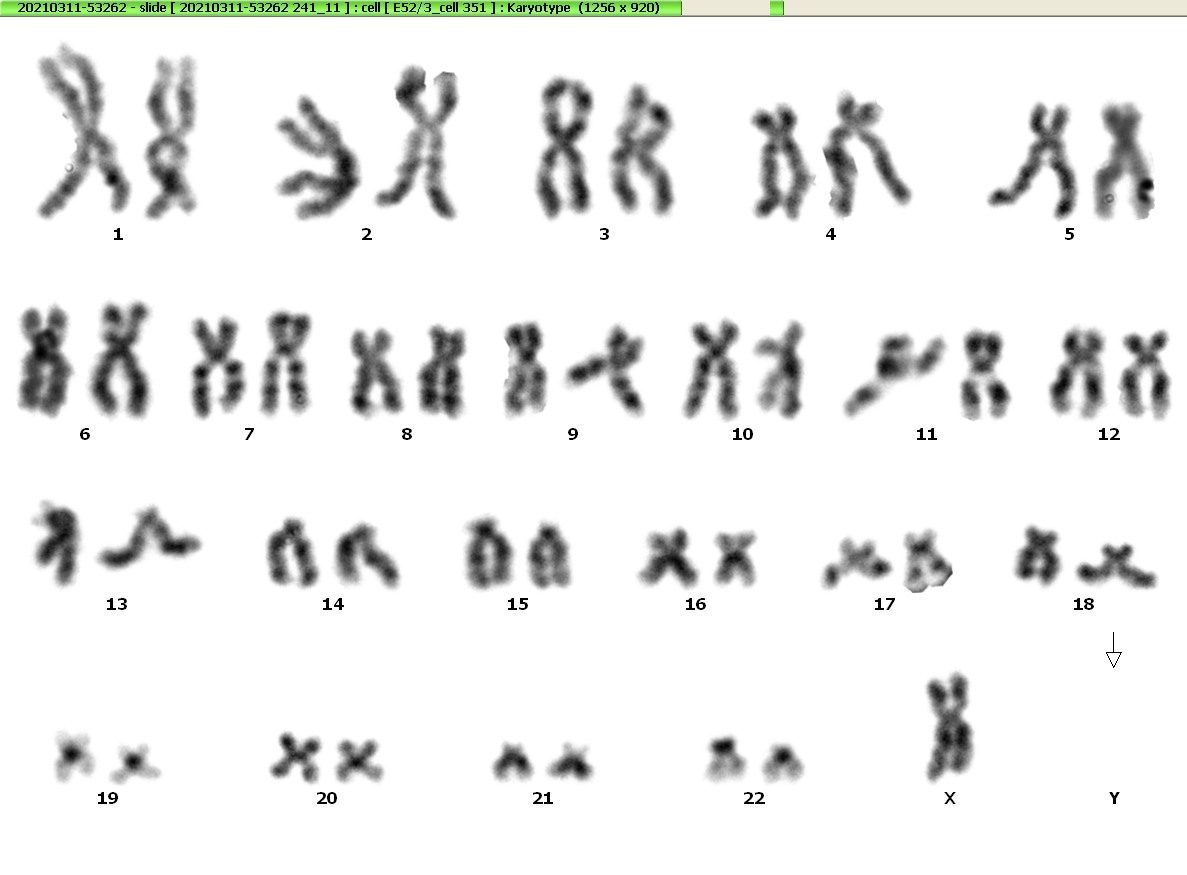 20210311-53262 - slide [ 20210311-53262 241_11 ] : cell [ E52/3_cell 351 ] : Karyotype (1256 x 920)
1 2 3 4 5
6 7 8 9 10 11 12
13 14 15 16 17 18
19 20 21 22 X Y